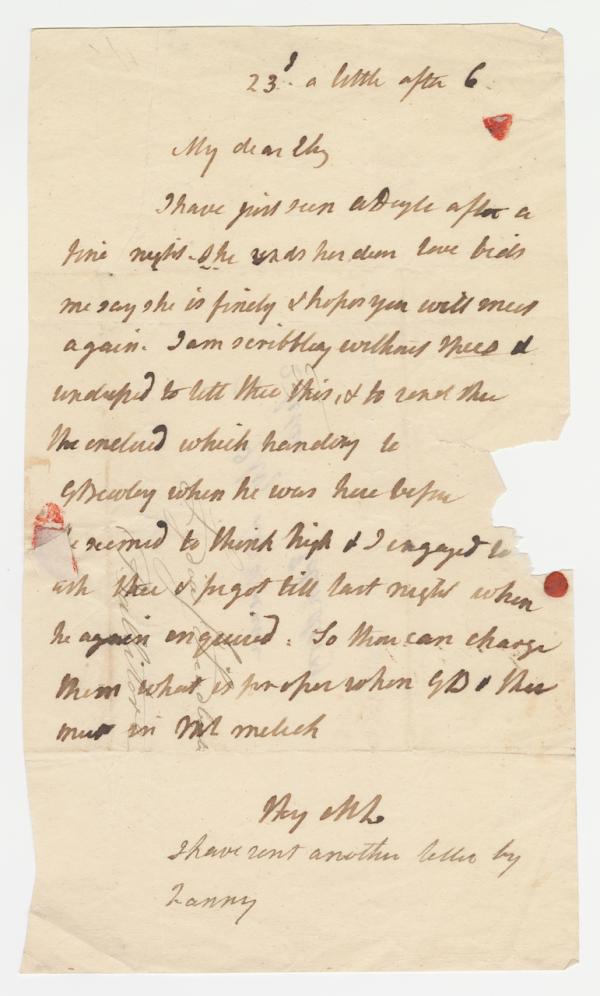 23d. a little after 6
My dear Eliz
I have just seen after a
fine night. She sends her dear love bids
me say she is finely & hopes you will meet
again. I am scribbling without specs &
undressed to tell thee this, & to send thee
the enclosed which handing to
when he was here before
he seemed to think high & I engaged to
ask thee & forgot till last night when
he again enquired. So thou can charge
them what is proper when GD & thee
meet in
Thy
I have sent another letter by
Fanny